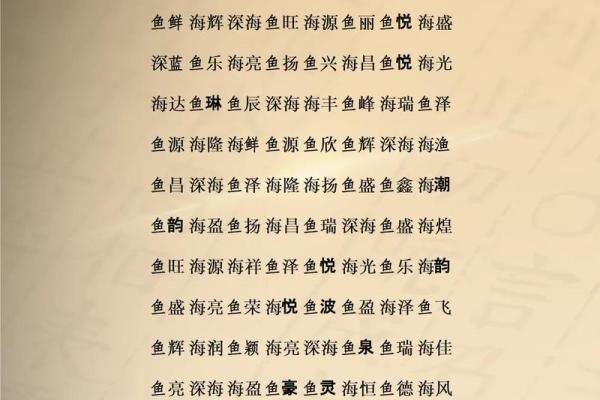 鱼鲜 海辉 深海 鱼旺 海源 鱼丽 鱼悦 海盛
深蓝 鱼乐 海亮 鱼扬 鱼兴 海昌 鱼悦 海光
海达 鱼琳 鱼辰 深海 海丰 鱼峰 海瑞 鱼泽
鱼源 海隆 海鲜 鱼源 鱼欣 鱼辉 深海 海渔
鱼昌 深海 鱼泽 海隆 海扬 鱼盛 鱼鑫 海潮
鱼韵 海盈 鱼扬 海昌 鱼瑞 深海 鱼盛 海煌
鱼旺 海源 海祥 鱼泽 鱼悦 海光 鱼乐 海韵
鱼盛 海亮 鱼荣 海悦 鱼波 鱼盈 海泽 鱼飞
鱼辉 海润 鱼颖 海亮 深海 鱼泉 鱼瑞 海佳
鱼亮 深海 海盈 鱼豪 鱼灵 海恒 鱼德 海风